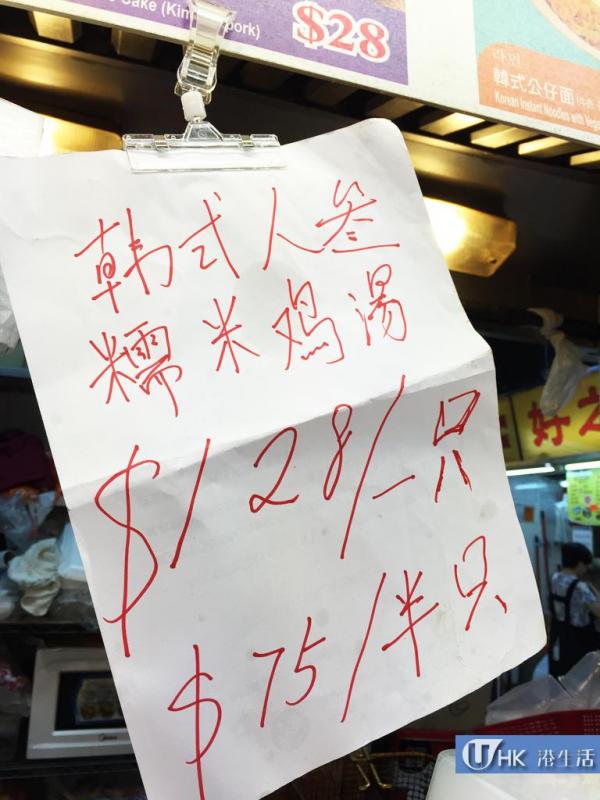 Cake (Kim pork)
$28
라면
韓式公仔面
Korean Instant Noodles with Vege
韩式人叁
糯米鸡汤
$128/一只
$75/半只
好
Midea
U HK 港生活